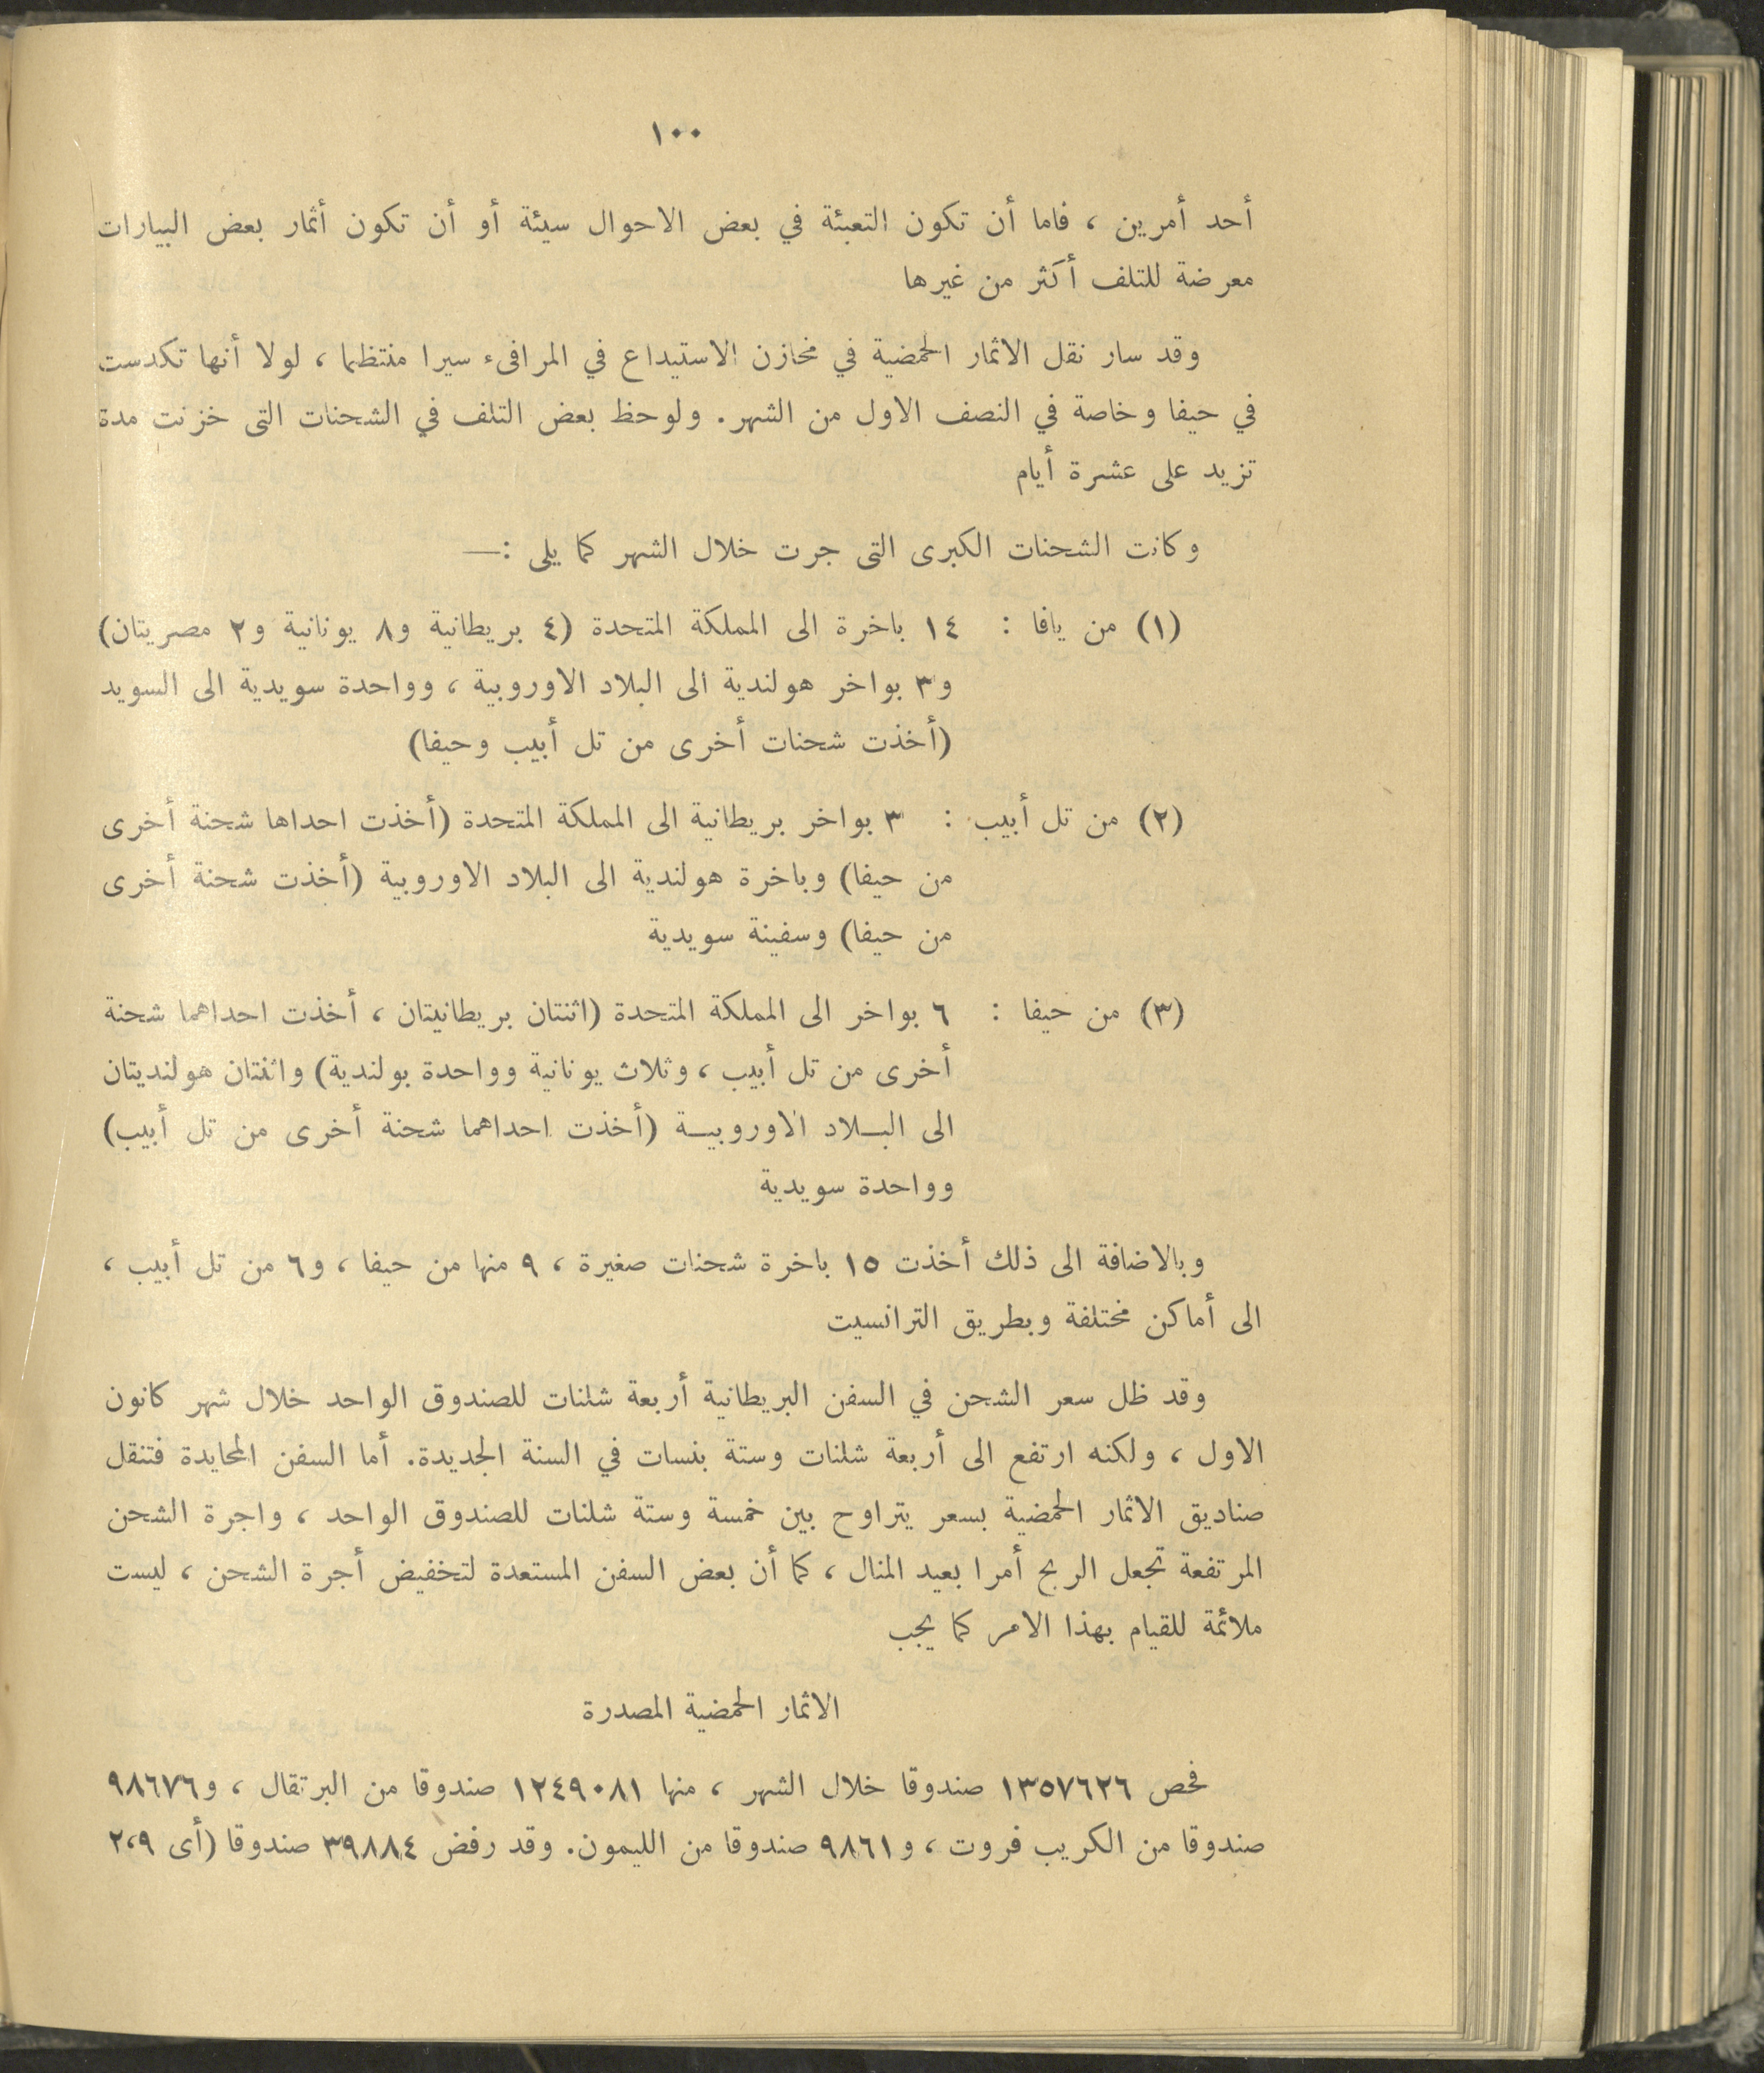 ١٠٠
أحد أمرين ، فاما أن تكون التعبئة في بعض الاحوال سيئة أو أن تكون أثمار بعض البيارات
معرضة للتلف أكثر من غيرها
وقد سار نقل الاثمار الحمضية في مخازن الاستيداع في المرافىء سيرا منتظما ، لولا أنها تكدست
في حيفا وخاصة في النصف الاول من الشهر. ولوحظ بعض التلف في الشحنات التى خزنت مدة
تزيد على عشرة أيام
وكانت الشحنات الكبرى التى جرت خلال الشهر كما يلى :—
(١) من يافا : ١٤ باخرة الى المملكة المتحدة (٤ بريطانية و٨ يونانية و٢ مصريتان)
و٣ بواخر هولندية الى البلاد الاوروبية ، وواحدة سويدية الى السويد
(أخذت شحنات أخرى من تل أبيب وحيفا)
(٢) من تل أبيب : ٣ بواخر بريطانية الى المملكة المتحدة (أخذت احداها شحنة أخرى
من حيفا) وباخرة هولندية الى البلاد الاوروبية (أخذت شحنة أخرى
من حيفا) وسفينة سويدية
(٣) من حيفا : ٦ بواخر الى المملكة المتحدة (اثنتان بريطانيتان ، أخذت احداهما شحنة
أخرى من تل أبيب ، وثلاث يونانية وواحدة بولندية) واثنتان هولنديتان
الى البـلاد الاوروبيـة (أخذت احداهما شحنة أخرى من تل أبيب)
وواحدة سويدية
وبالاضافة الى ذلك أخذت ١٥ باخرة شحنات صغيرة ، ٩ منها من حيفا ، و٦ من تل أبيب ،
الى أماكن مختلفة وبطريق الترانسيت
وقد ظل سعر الشحن في السفن البريطانية أربعة شلنات للصندوق الواحد خلال شهر كانون
الاول ، ولكنه ارتفع الى أربعة شلنات وستة بنسات في السنة الجديدة. أما السفن المحايدة فتنقل
صناديق الاثمار الحمضية بسعر يتراوح بين خمسة وستة شلنات للصندوق الواحد ، واجرة الشحن
المرتفعة تجعل الربح أمرا بعيد المنال ، كما أن بعض السفن المستعدة لتخفيض أجرة الشحن ، ليست
ملائمة للقيام بهذا الامر كما يجب
الاثمار الحمضية المصدرة
فحص ١٣٥٧٦٢٦ صندوقا خلال الشهر ، منها ١٢٤٩٠٨١ صندوقا من البرتقال ، و٩٨٦٧٦
صندوقا من الكريب فروت ، و٩٨٦١ صندوقا من الليمون. وقد رفض ٣٩٨٨٤ صندوقا (أى ٢،٩